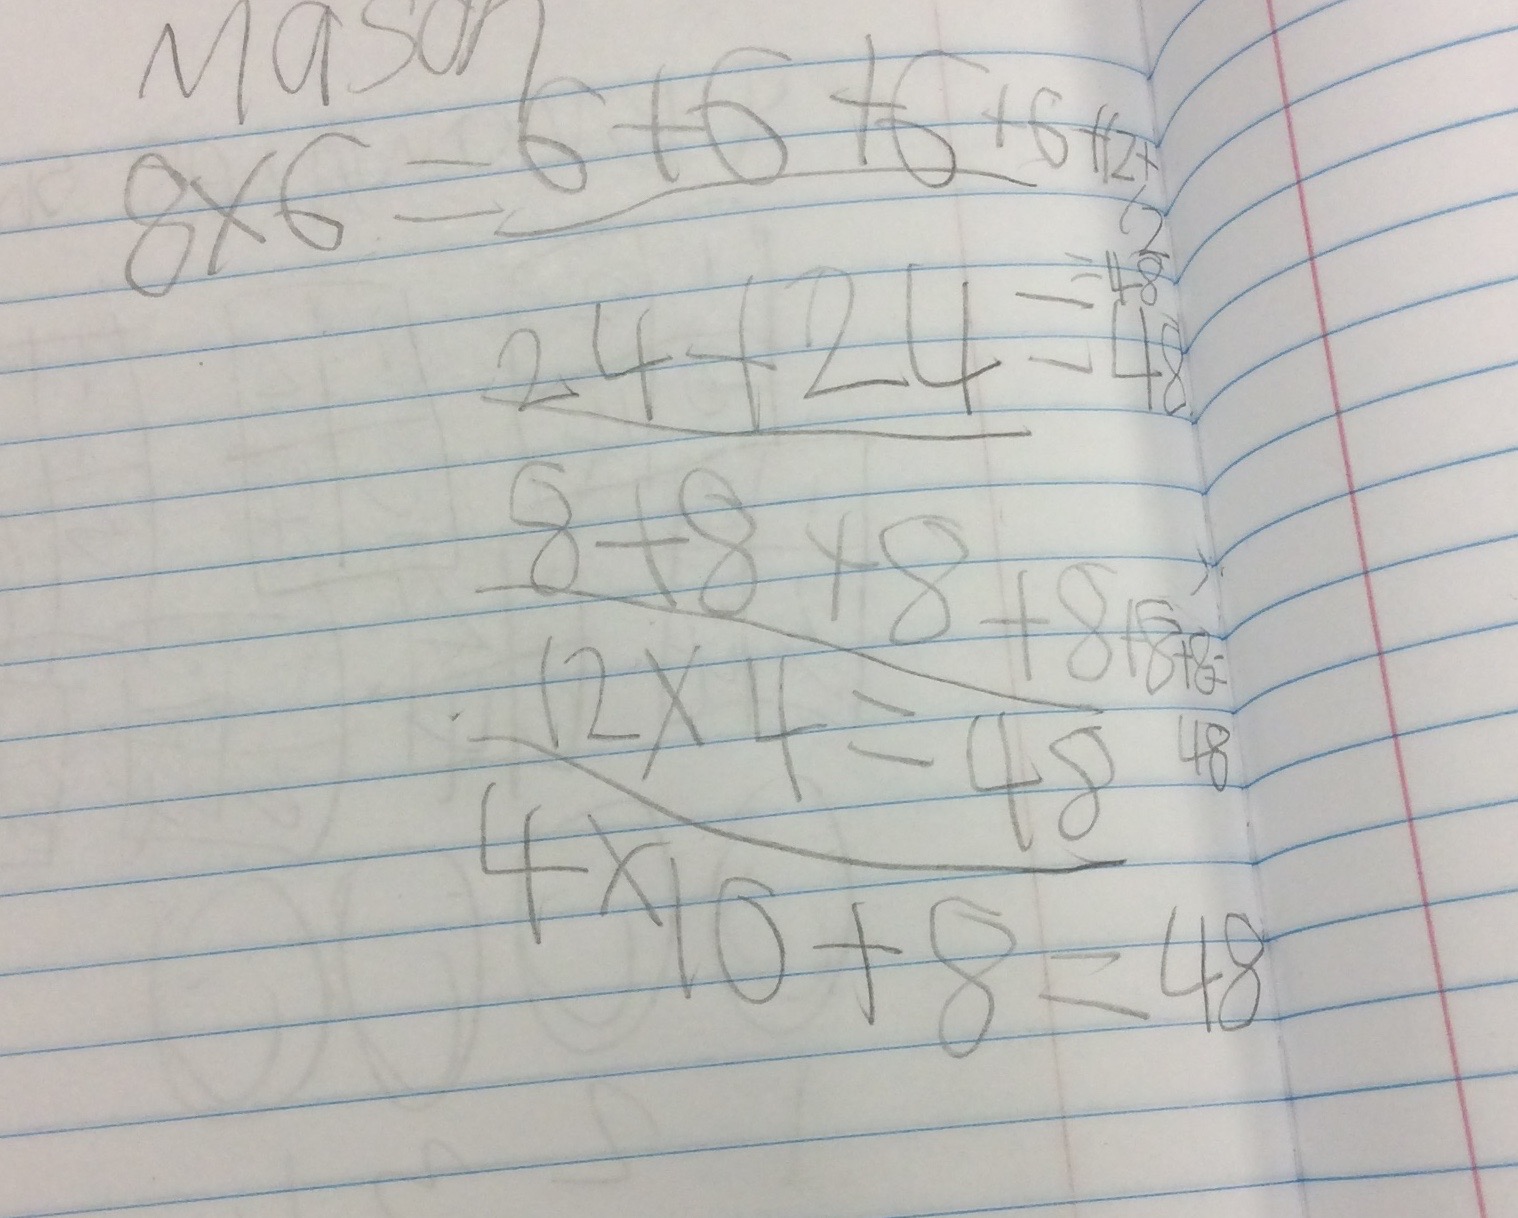 Mason
8x6 = 6+6+6+6+12+
12
=48
24+24=48
8+8+8+8+8+8=
48
12x4=48
4x10+8=48